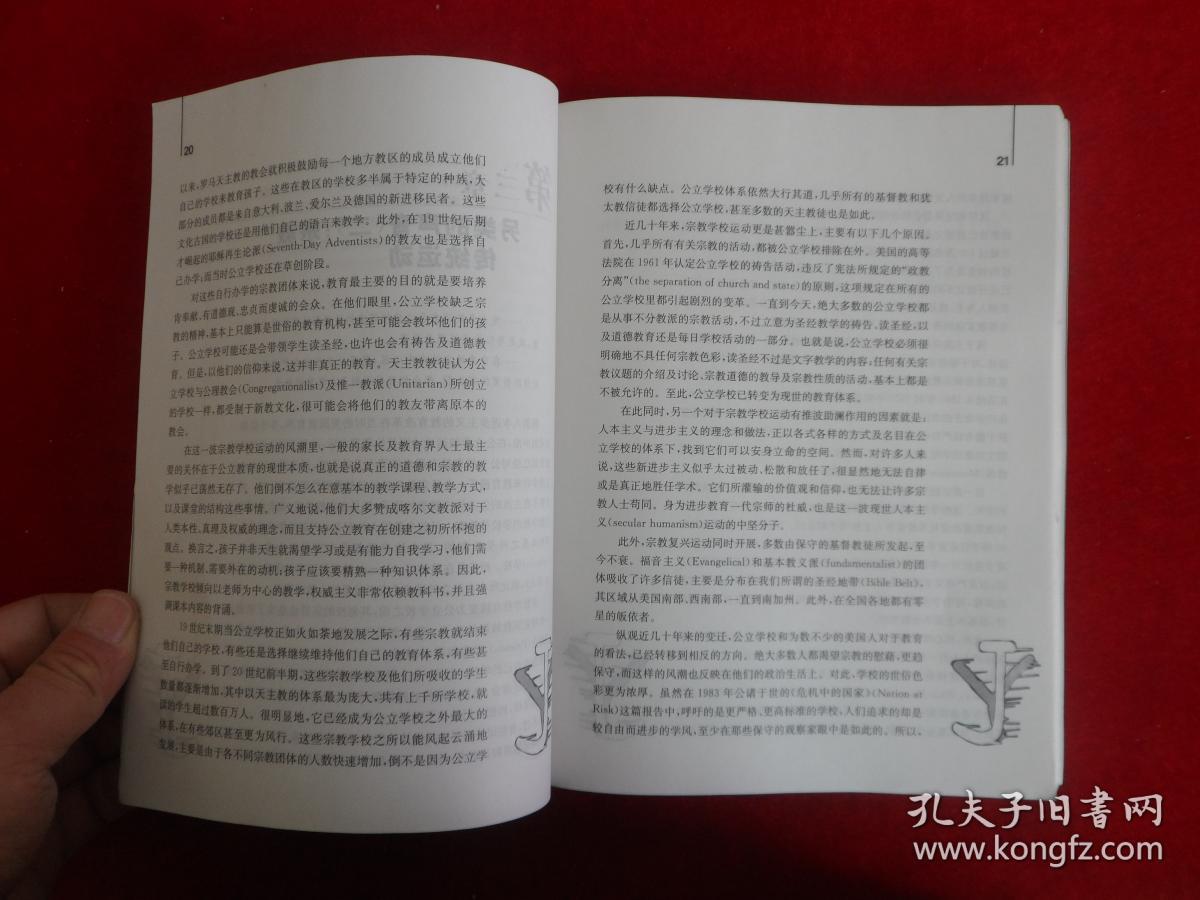 20
以来,罗马天主教的教会就积极鼓励每一个地方教区的成员成立他们
自己的学校来教育孩子。这些在教区的学校多半属于特定的种族,大
部分的成员都是来自意大利、波兰、爱尔兰及德国的新进移民者。这些
文化古国的学校还是用他们自己的语言来教学。此外,在19世纪后期
才崛起的耶稣再生论派(Seventh-Day Adventists)的教友也是选择自
己办学;而当时公立学校还在草创阶段。
对这些自行办学的宗教团体来说,教育最主要的目的就是要培养
肯奉献、有道德观、忠贞而虔诚的会众。在他们眼里,公立学校缺乏宗
教的精神,基本上只能算是世俗的教育机构,甚至可能会教坏他们的孩
子。公立学校可能还是会带领学生读圣经,也许也会有祷告及道德教
育。但是,以他们的信仰来说,这并非真正的教育。天主教教徒认为公
立学校与公理教会(Congregationalist)及惟一教派(Unitarian)所创立
的学校一样,都受制于新教文化,很可能会将他们的教友带离原本的
教会。
在这一波宗教学校运动的风潮里,一般的家长及教育界人士最主
要的关怀在于公立教育的现世本质,也就是说真正的道德和宗教的教
学似乎已荡然无存了。他们倒不怎么在意基本的教学课程、教学方式,
以及课堂的结构这些事情。广义地说,他们大多赞成喀尔文教派对于
人类本性、真理及权威的理念,而且支持公立教育在创建之初所怀抱的
观点。换言之,孩子并非天生就渴望学习或是有能力自我学习,他们需
要一种机制,需要外在的动机;孩子应该要精熟一种知识体系。因此,
宗教学校倾向以老师为中心的教学,权威主义非常依赖教科书,并且强
调课本内容的背诵。
19世纪末期当公立学校正如火如荼地发展之际,有些宗教就结束
他们自己的学校,有些还是选择继续维持他们自己的教育体系,有些甚
至自行办学。到了20世纪前半期,这些宗教学校及他们所吸收的学生
数量都逐渐增加,其中以天主教的体系最为庞大,共有上千所学校,就
读的学生超过数百万人。很明显地,它已经成为公立学校之外最大的
体系,在有些郊区甚至更为风行。这些宗教学校之所以能风起云涌地
发展,主要是由于各不同宗教团体的人数快速增加,倒不是因为公立学
21
校有什么缺点。公立学校体系依然大行其道,几乎所有的基督教和犹
太教信徒都选择公立学校,甚至多数的天主教徒也是如此。
近几十年来,宗教学校运动更是甚嚣尘上,主要有以下几个原因。
首先,几乎所有有关宗教的活动,都被公立学校排除在外。美国的高等
法院在1961年认定公立学校的祷告活动,违反了宪法所规定的“政教
分离”(the separation of church and state)的原则,这项规定在所有的
公立学校里都引起剧烈的变革。一直到今天,绝大多数的公立学校都
是从事不分教派的宗教活动,不过立意为圣经教学的祷告、读圣经,以
及道德教育还是每日学校活动的一部分。也就是说,公立学校必须很
明确地不具任何宗教色彩,读圣经不过是文字教学的内容,任何有关宗
教议题的介绍及讨论、宗教道德的教导及宗教性质的活动,基本上都是
不被允许的。至此,公立学校已转变为现世的教育体系。
在此同时,另一个对于宗教学校运动有推波助澜作用的因素就是:
人本主义与进步主义的理念和做法,正以各式各样的方式及名目在公
立学校的体系下,找到它们可以安身立命的空间。然而,对许多人来
说,这些新进步主义似乎太过被动、松散和放任了,很显然地无法自律
或是真正地胜任学术。它们所灌输的价值观和信仰,也无法让许多宗
教人士苟同。身为进步教育一代宗师的杜威,也是这一波现世人本主
义(secular humanism)运动的中坚分子。
此外,宗教复兴运动同时开展,多数由保守的基督教徒所发起,至
今不衰。福音主义(Evangelical)和基本教义派(fundamentalist)的团
体吸收了许多信徒,主要是分布在我们所谓的圣经地带(Bible Belt),
其区域从美国南部、西南部,一直到南加州。此外,在全国各地都有零
星的皈依者。
纵观近几十年来的变迁,公立学校和为数不少的美国人对于教育
的看法,已经转移到相反的方向。绝大多数人都渴望宗教的慰藉,更趋
保守,而这样的风潮也反映在他们的政治生活上。对此,学校的世俗色
彩更为浓厚。虽然在1983年公诸于世的《危机中的国家》(Nation at
Risk)这篇报告中,呼吁的是更严格、更高标准的学校,人们追求的却是
较自由而进步的学风,至少在那些保守的观察家眼中是如此的。所以,
孔夫子旧書网
www.kongfz.com